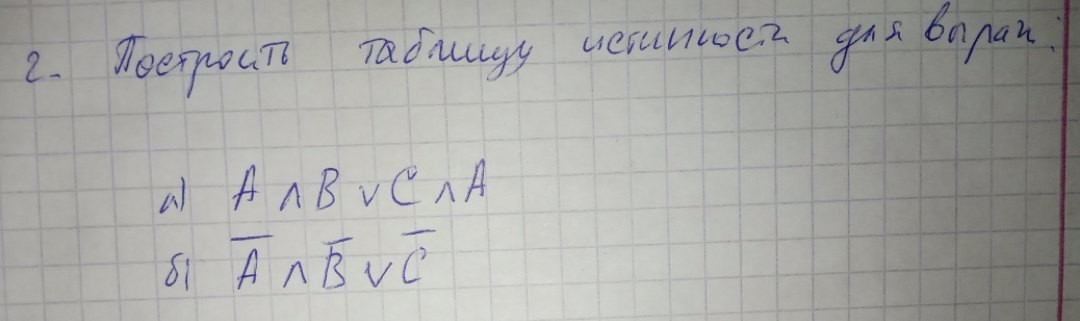 2. Построить таблицу истинности для выраж.:
а) A ∧ B ∨ C ∧ A
б) A̅ ∧ B̅ ∨ C̅